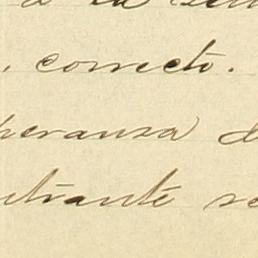 a la
, correcto.
peranza d
trante se